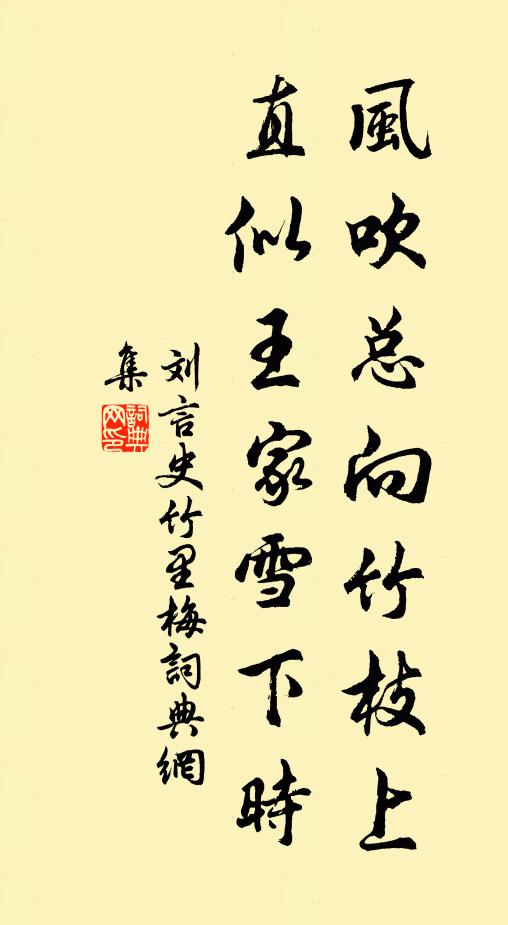 風吹总向竹枝上
直似王家雪下時
刘言史竹里梅詞典網
集
詞典
网印